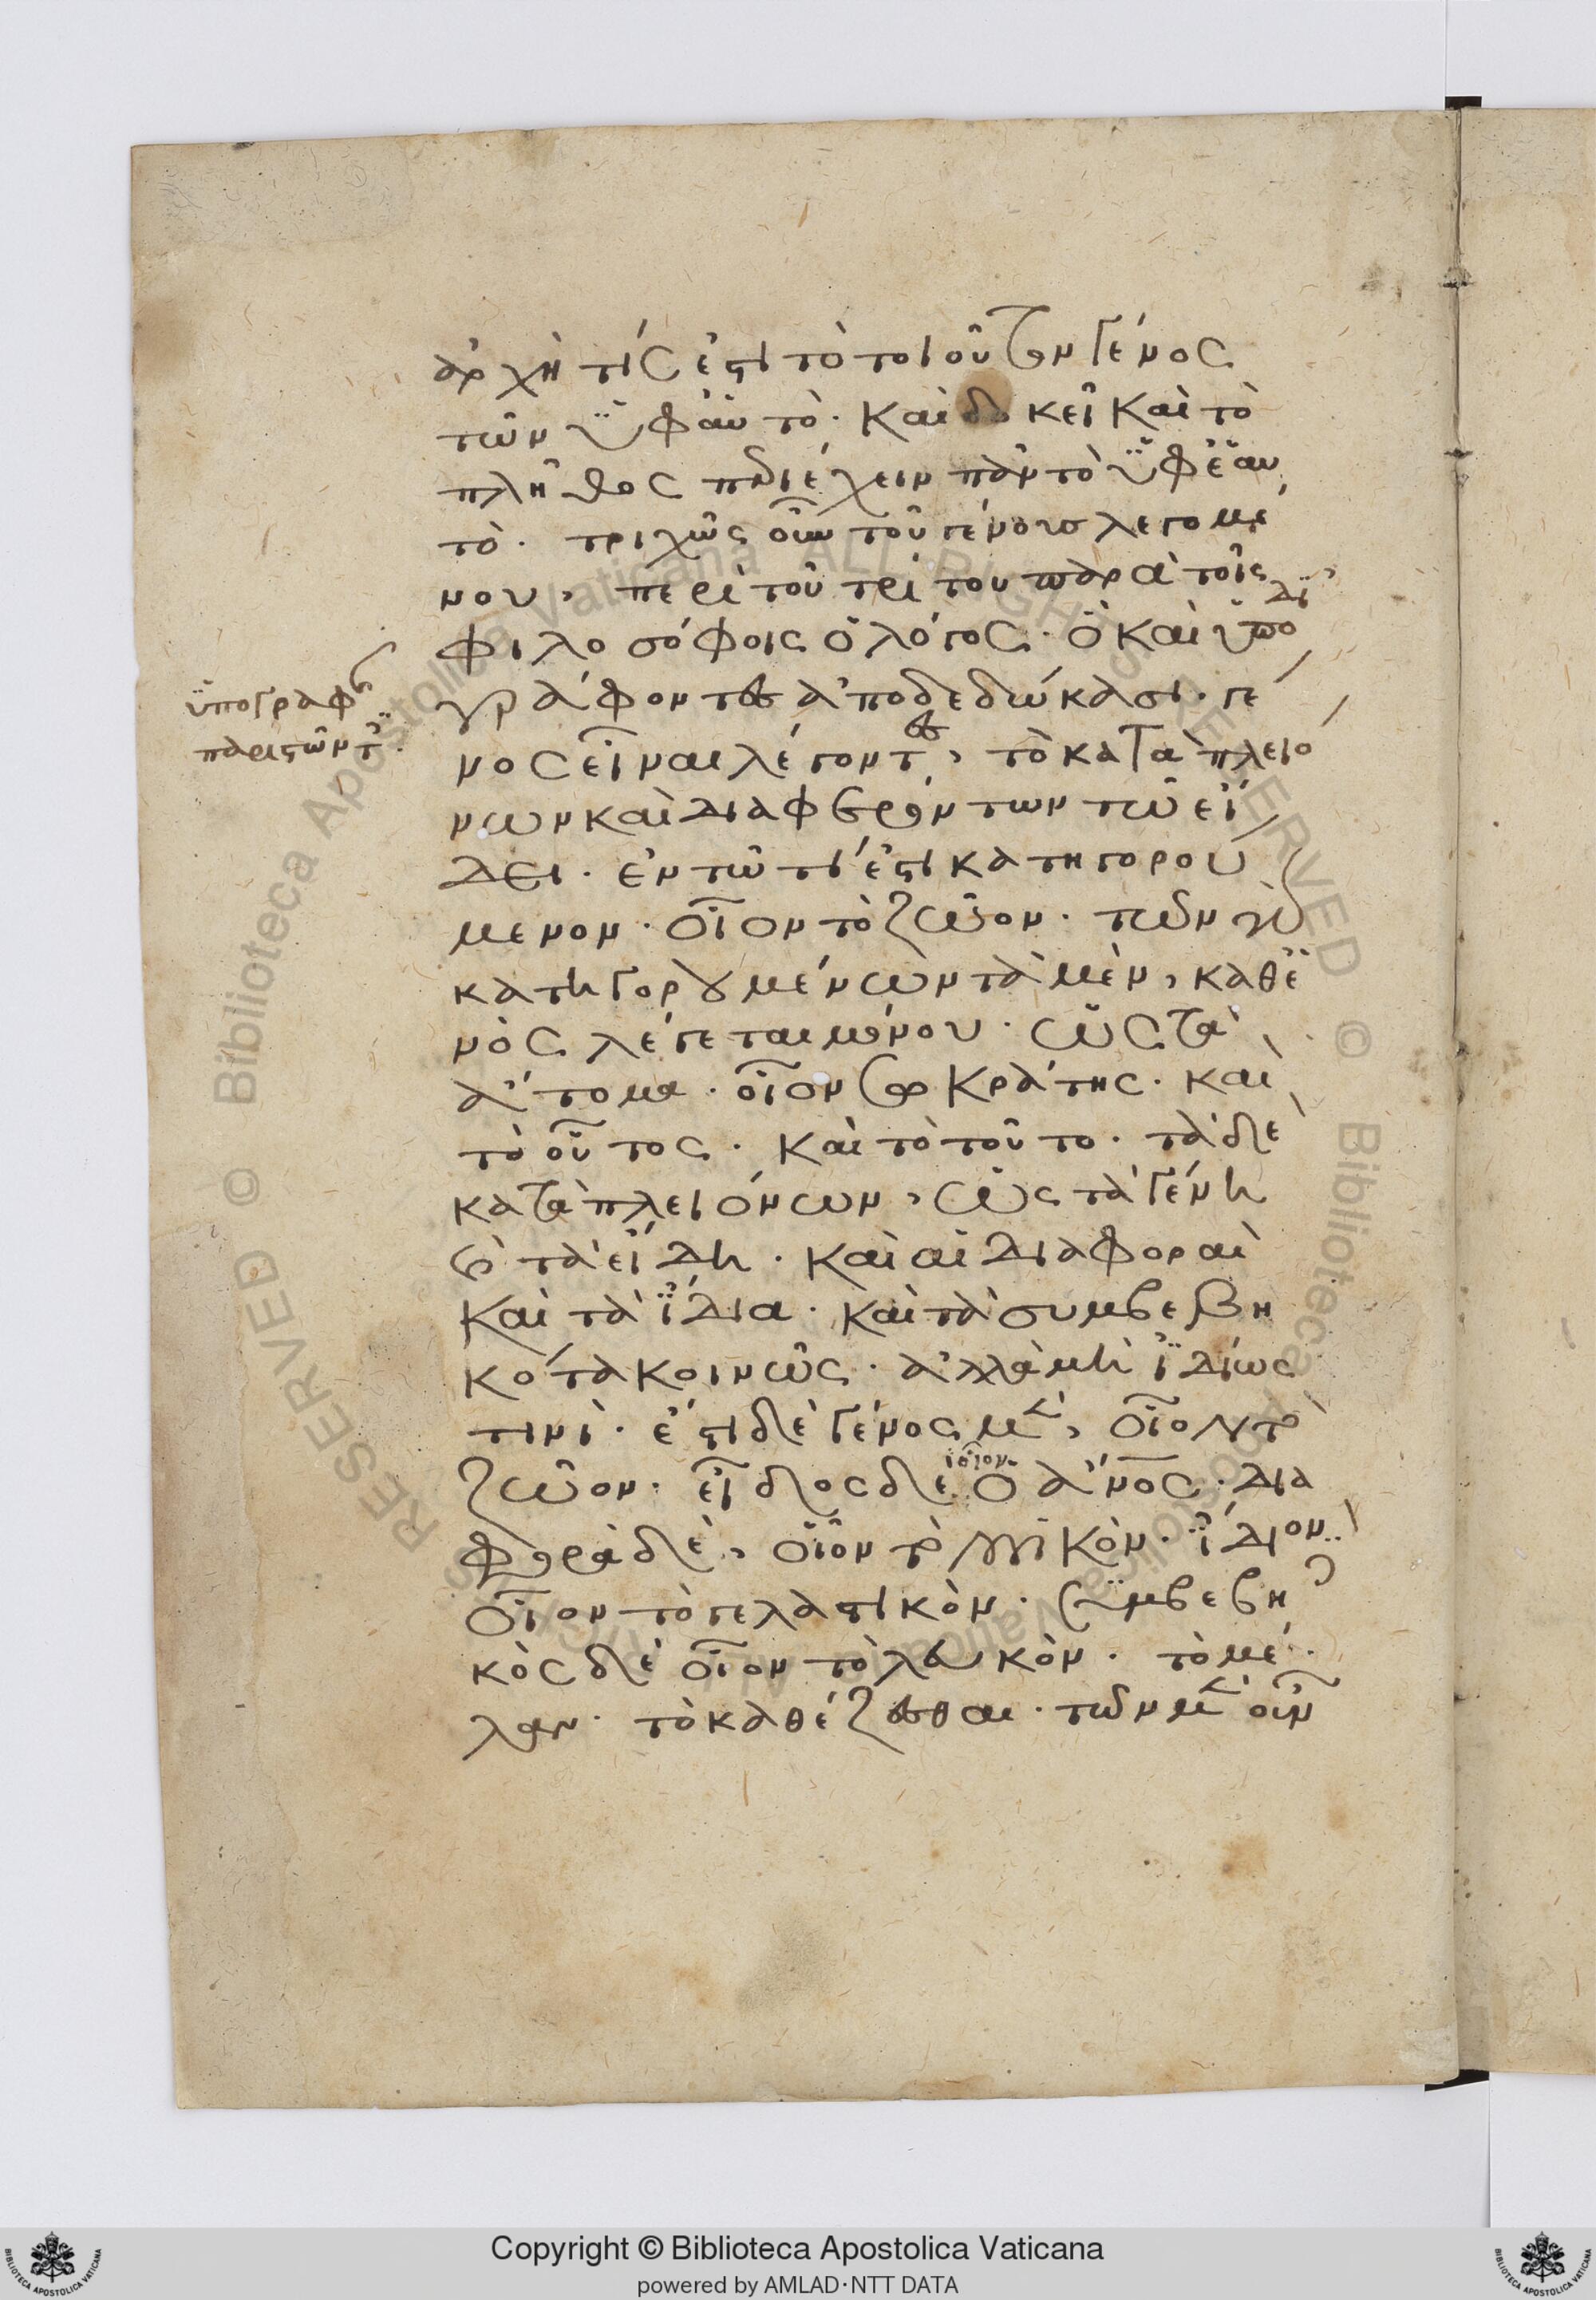 ἀρχή τίς ἐστι τὸ τοιοῦτον γένος
τῶν ὑφαυτό. καὶ δοκεῖ καὶ τὸ
πλῆθος περιέχειν πᾶν τὸ ὑφἑαυ
τό. τριχῶς οὖν τοῦ γένους λεγομέ
νου, περὶ τοῦ τρίτου παρὰ τοῖς
φιλοσόφοις ὁ λόγος. ὃ καὶ ὑπο
ὑπογραφ
γράφοντες ἀποδεδώκασι. γέ
παριστῶντ.
νος εἶναι λέγοντες, τὸ κατὰ πλειό
νων καὶ διαφερόντων τῷ εἴ
δει. ἐν τῷ τί ἐστι κατηγορού
μενον. οἷον τὸ ζῶον. τῶν γὰρ
κατηγορουμένων τὰ μὲν, καθἑ
νὸς λέγεται μόνου. ὡς τὰ
ἄτομα. οἷον σωκράτης. καὶ
τὸ οὗτος. καὶ τὸ τοῦτο. τὰ δὲ
κατὰ πλειόνων, ὡς τὰ γένη
καὶ τὰ εἴδη. καὶ αἱ διαφοραὶ
καὶ τὰ ἴδια. καὶ τὰ συμβεβη
κότα κοινῶς. ἀλλὰ μὴ ἰδίως
τινί. ἔστι δὲ γένος μὲν, οἷον τὸ
ζῶον. εἶδος δὲ οἷον ὁ ἄνος. δια
φορὰ δὲ, οἷον τὸ λογικόν. ἴδιον
οἷον τὸ γελαστικόν. συμβεβη
κὸς δὲ οἷον τὸ λευκόν. τὸ μέ
λαν. τὸ καθέζεσθαι. τῶν μὲν οὖν
Copyright © Biblioteca Apostolica Vaticana
powered by AMLAD·NTT DATA